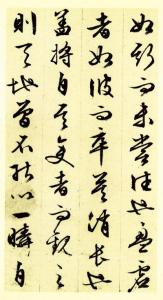 如斯而未嘗往也盈虛
者如彼而卒莫消長也
蓋將自其變者而觀之
則天地曾不能以一瞬自